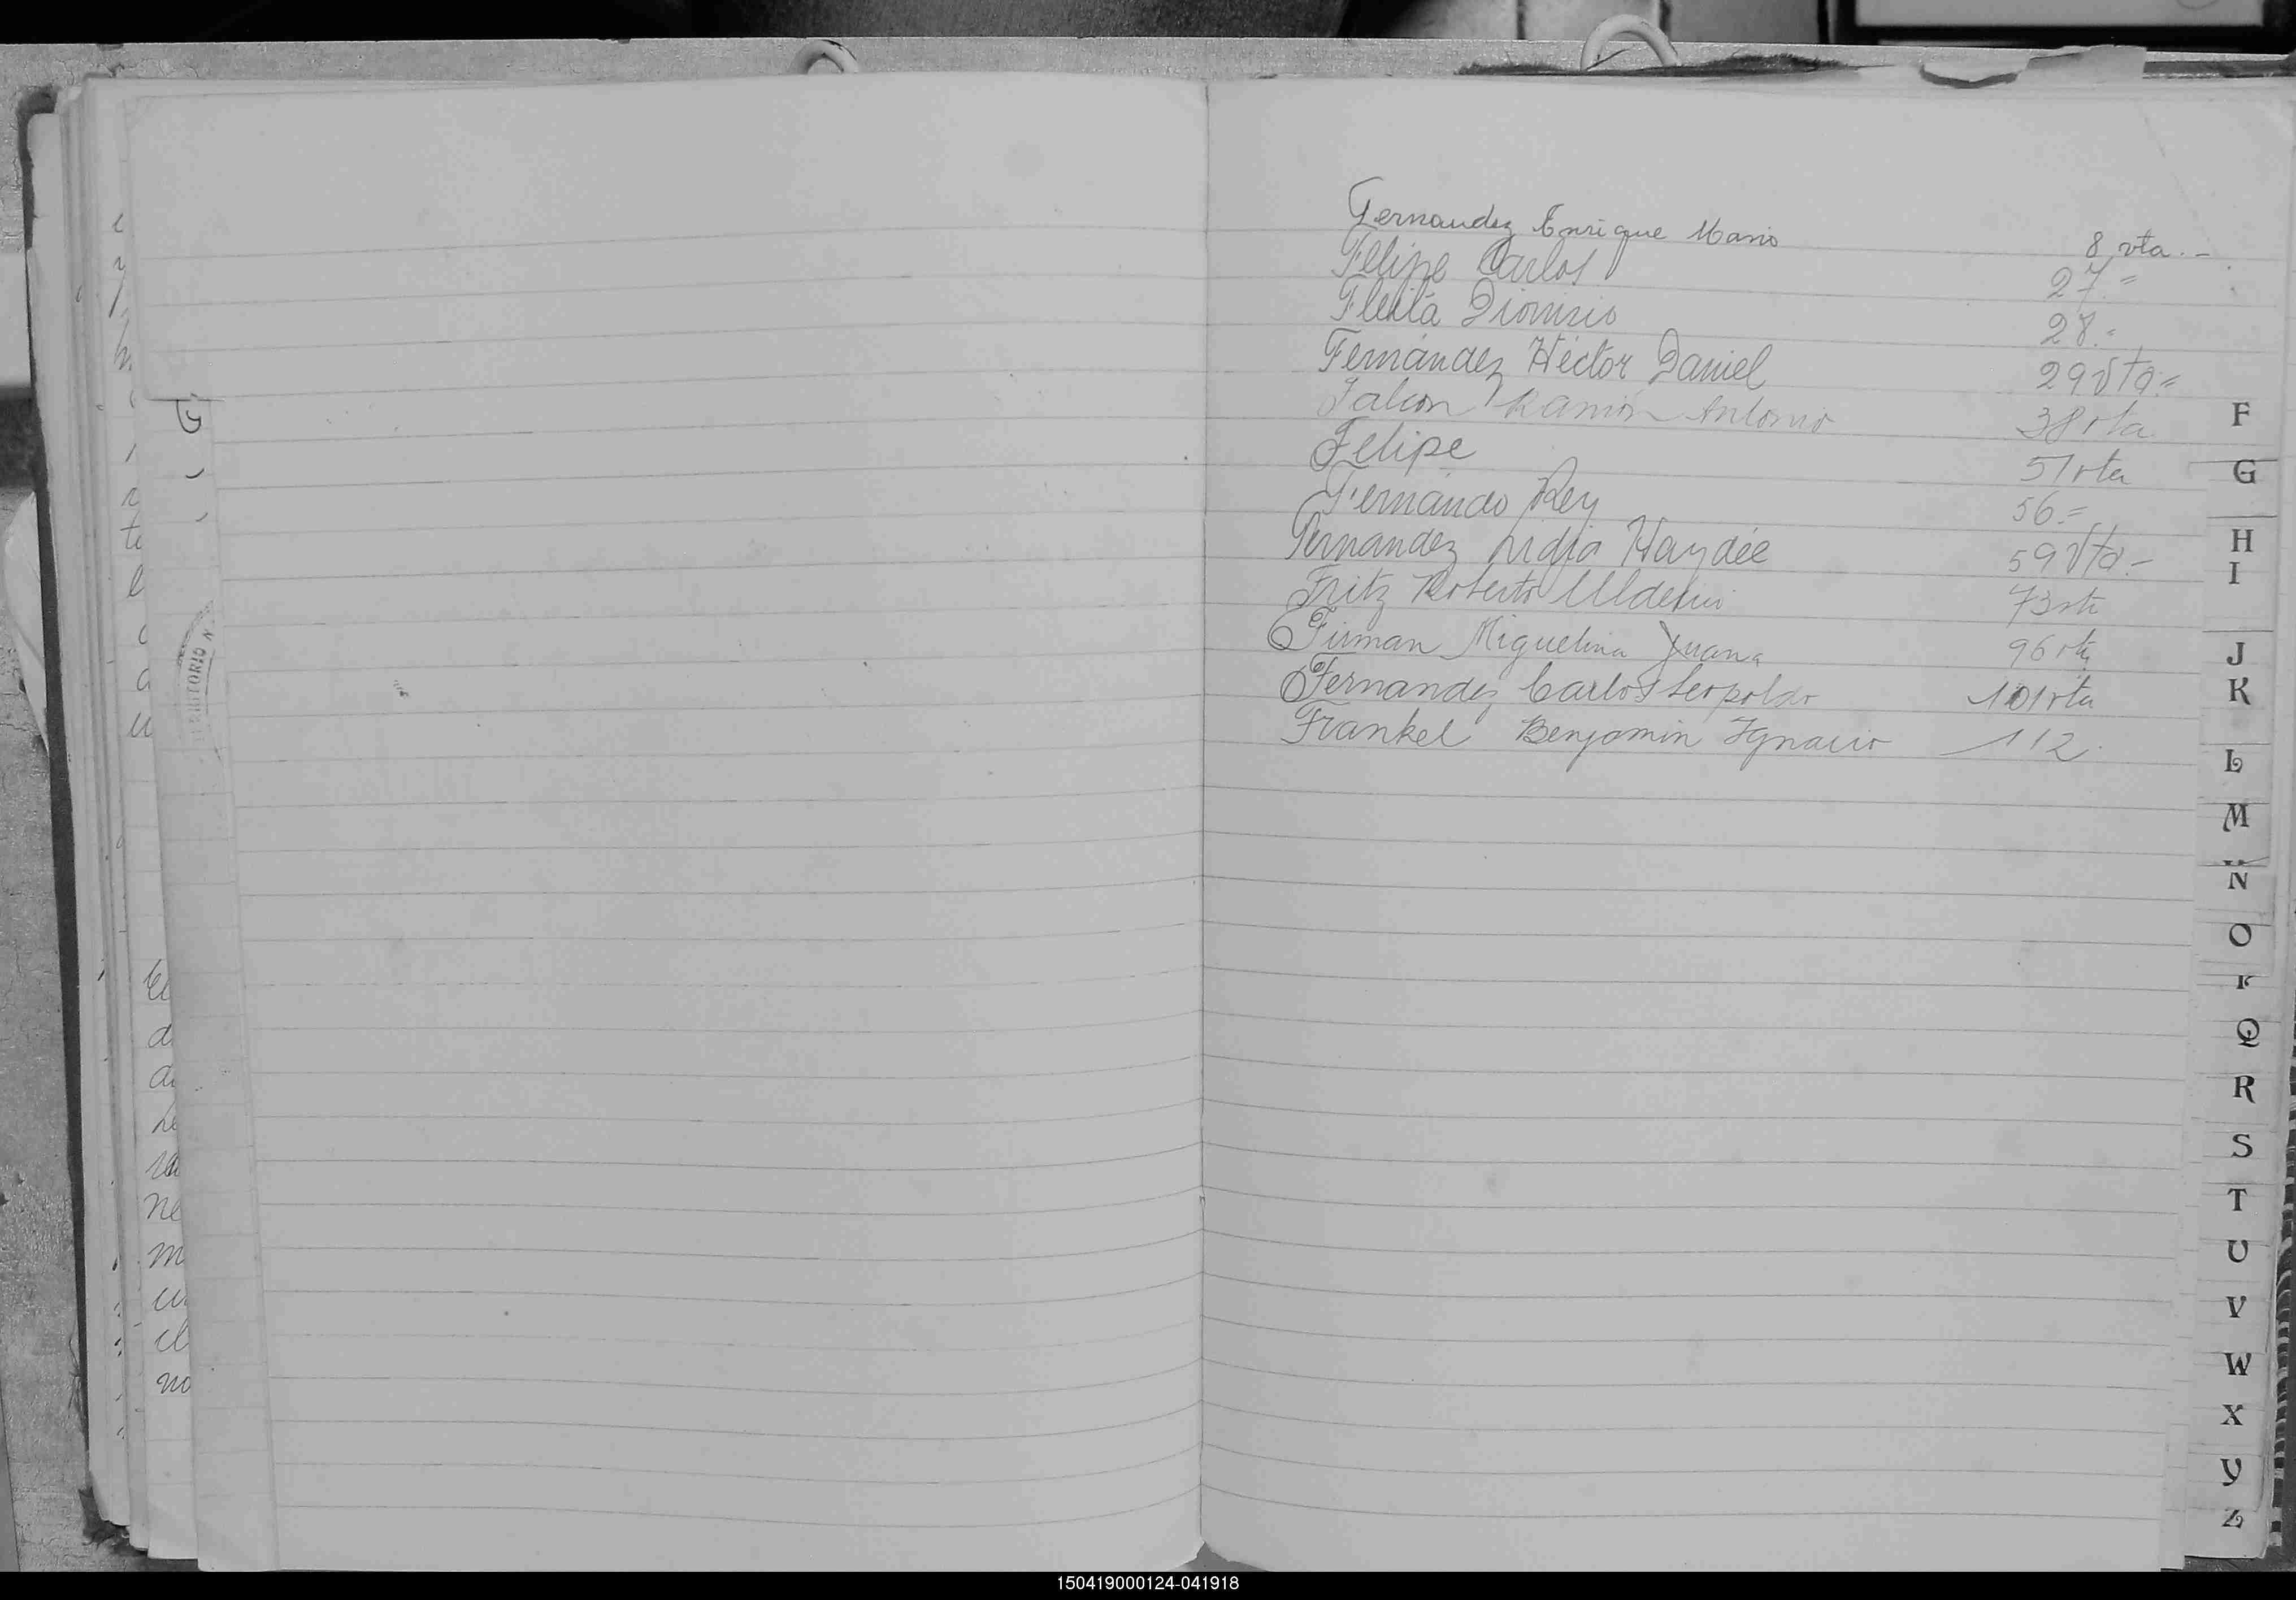 Fernandez Enrique Mario 8 vta.-
Felipe Carlos 27.=
Fleita Dionisio 28.=
Fernández Héctor Daniel 29 Vta.=
Falcon Ramón Antonio 38 vta
Felipe 51 vta
Fernando Rey 56.=
Fernandez Lidia Haydée 59 Vta.-
Fritz Roberto 73 vta
Firman Miguelina Juana 96 vta
Fernandez Carlos Leopoldo 101 vta
Frankel Benjamin Ygnacio 112.
F
G
H
I
J
K
L
M
N
O
P
Q
R
S
T
U
V
W
X
Y
Z
150419000124-041918